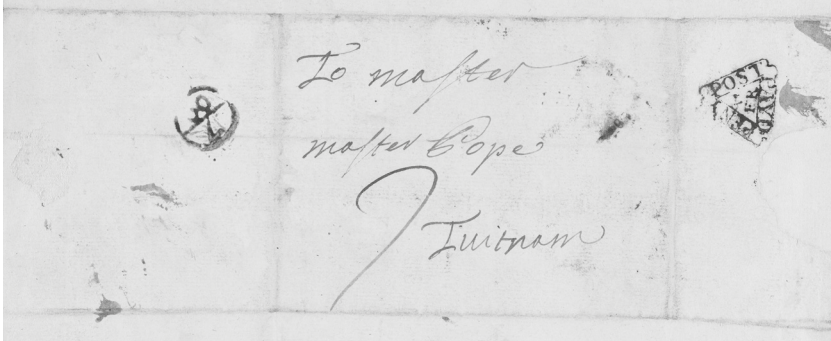 To maſter
maſter Pope
7
Tuitnam
POST
PAYD